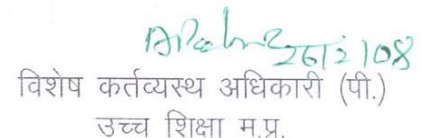 26/2/08
विशेष कर्तव्यस्थ अधिकारी (पी.)
उच्च शिक्षा म.प्र.